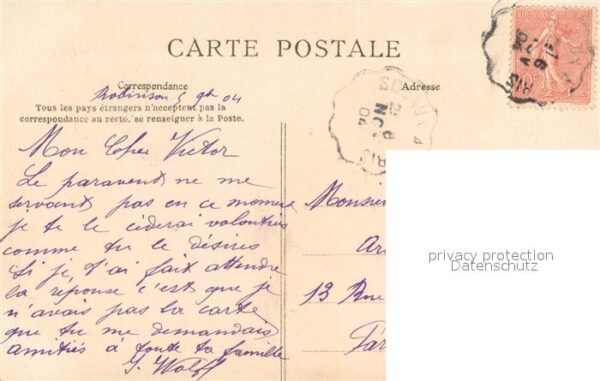 CARTE POSTALE
Correspondance
Adresse
Robinson 6 9bre 04
Tous les pays étrangers n'acceptent pas la
correspondance au recto, se renseigner à la Poste.
Mon Cher Victor
Le paravent ne me
servant pas en ce moment
je te le céderai volontiers
comme tu le désires
Si je t'ai fait attendre
la réponse c'est que je
n'avais pas la carte
que tu me demandais
amitiés à toute ta famille
J. Wolff
Monsieur
13 Rue
privacy protection
Datenschutz